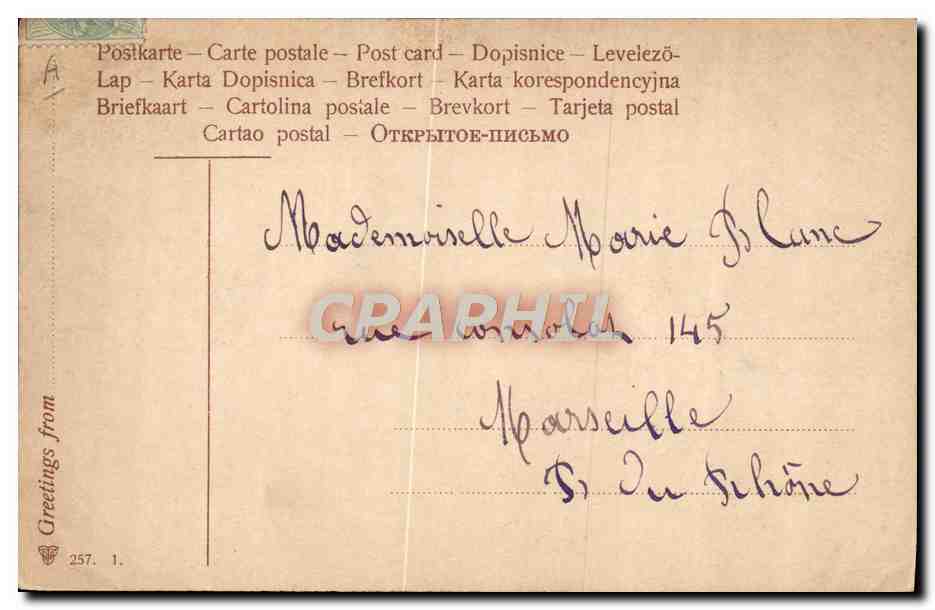 Postkarte – Carte postale – Post card – Dopisnice – Levelező-
Lap – Karta Dopisnica – Brefkort – Karta korespondencyjna
Briefkaart – Cartolina postale – Brevkort – Tarjeta postal
Cartao postal – Открытое-письмо
A
Mademoiselle Marie Blanc
CPARHIL
rue consolat 145
Marseille
B du Rhône
Greetings from
257. 1.